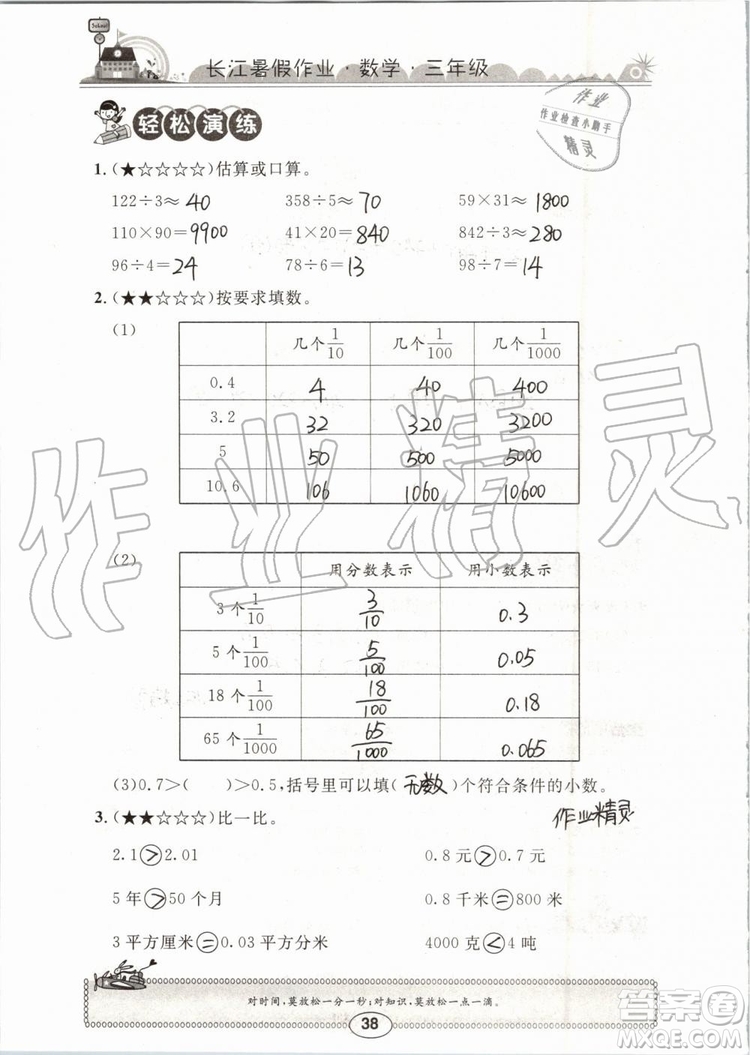 School
长江暑假作业·数学·三年级
轻松演练
作业
作业检查小助手
精灵
1.(★☆☆☆☆)估算或口算。
122÷3≈ 40 358÷5≈ 70 59×31≈ 1800
110×90= 9900 41×20= 840 842÷3≈ 280
96÷4= 24 78÷6= 13 98÷7= 14
2.(★★☆☆☆)按要求填数。
(1)
几个1/10 几个1/100 几个1/1000
0.4 4 40 400
3.2 32 320 3200
5 50 500 5000
10.6 106 1060 10600
(2)
用分数表示 用小数表示
3个1/10 3/10 0.3
5个1/100 5/100 0.05
18个1/100 18/100 0.18
65个1/1000 65/1000 0.065
(3)0.7＞( )＞0.5,括号里可以填(无数)个符合条件的小数。
3.(★★☆☆☆)比一比。
作业精灵
2.1＞2.01 0.8元＞0.7元
5年＞50个月 0.8千米=800米
3平方厘米=0.03平方分米 4000克＜4吨
对时间,莫放松一分一秒;对知识,莫放松一点一滴。
38
作业精灵
答案圈
MXQE.COM